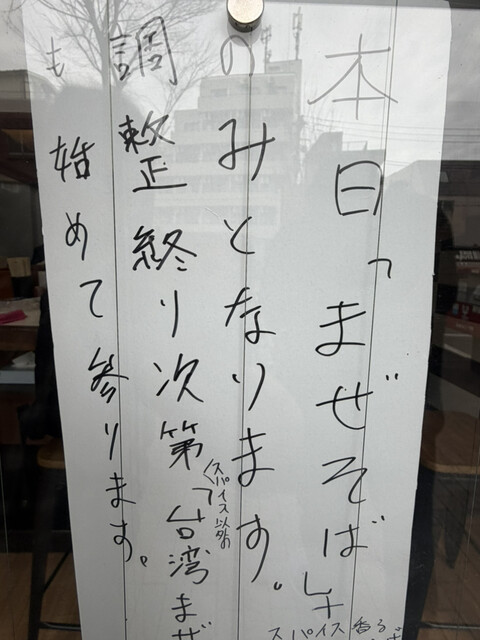 本日「まぜそば」
スパイス香る
のみとなります。
調整終り次第「台湾まぜ
(スパイス以外の
も始めて参ります。